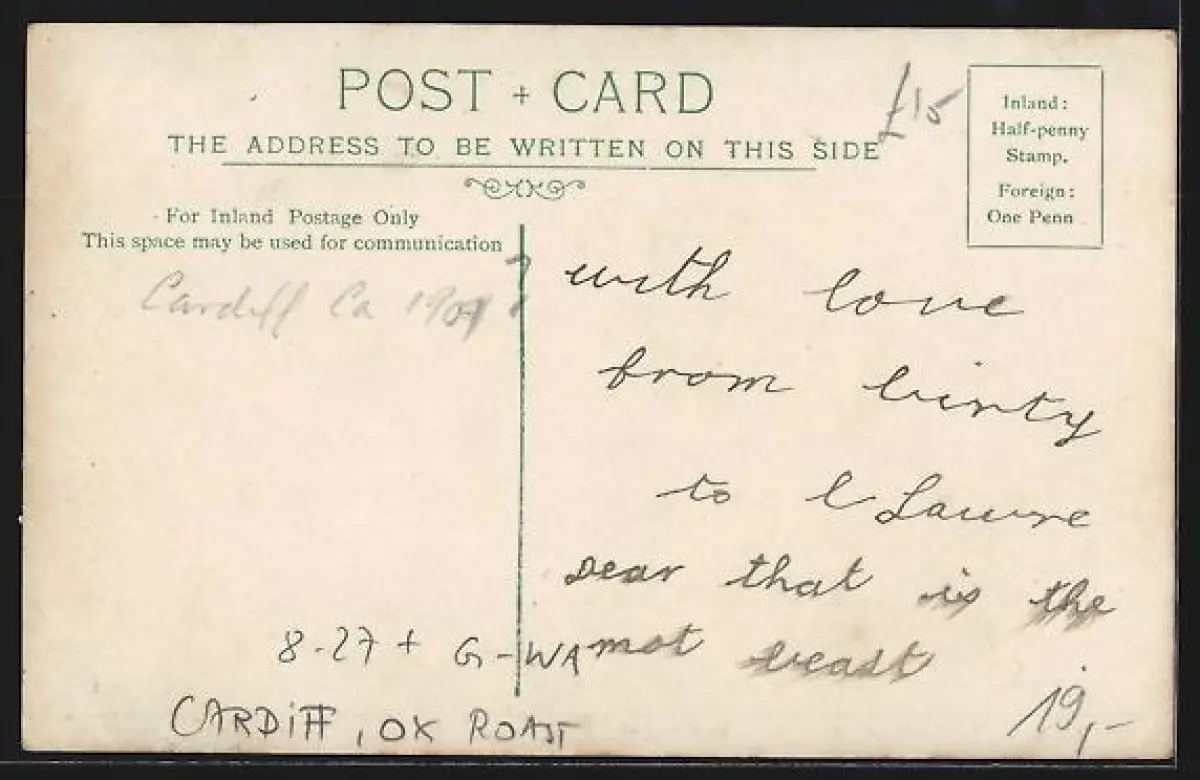 POST + CARD
£15
THE ADDRESS TO BE WRITTEN ON THIS SIDE
Inland:
Half-penny
Stamp.
Foreign:
One Penn
For Inland Postage Only
This space may be used for communication
Cardiff Ca
with love
from
to
dear that is the
8-27+ G-WA
CARDIFF, OX ROAST
19,-